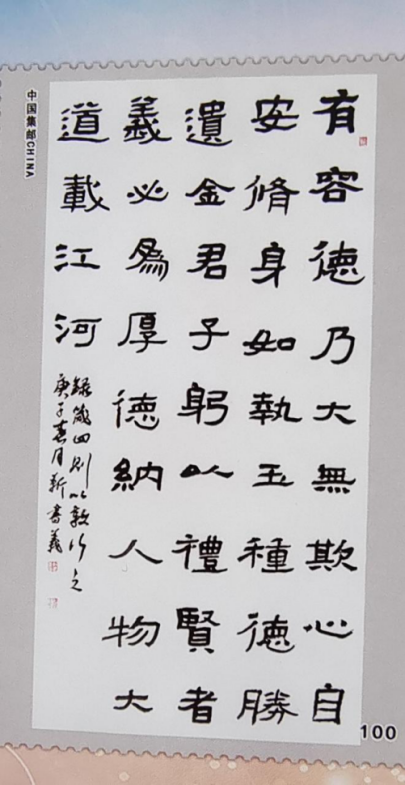 有容德乃大無欺心自
安脩身如執玉種德勝
遺金君子躬以禮賢者
義必為厚德納人物大
道載江河
錄箴四則以敦行之
庚子春月新書義
中国集邮CHINA
100